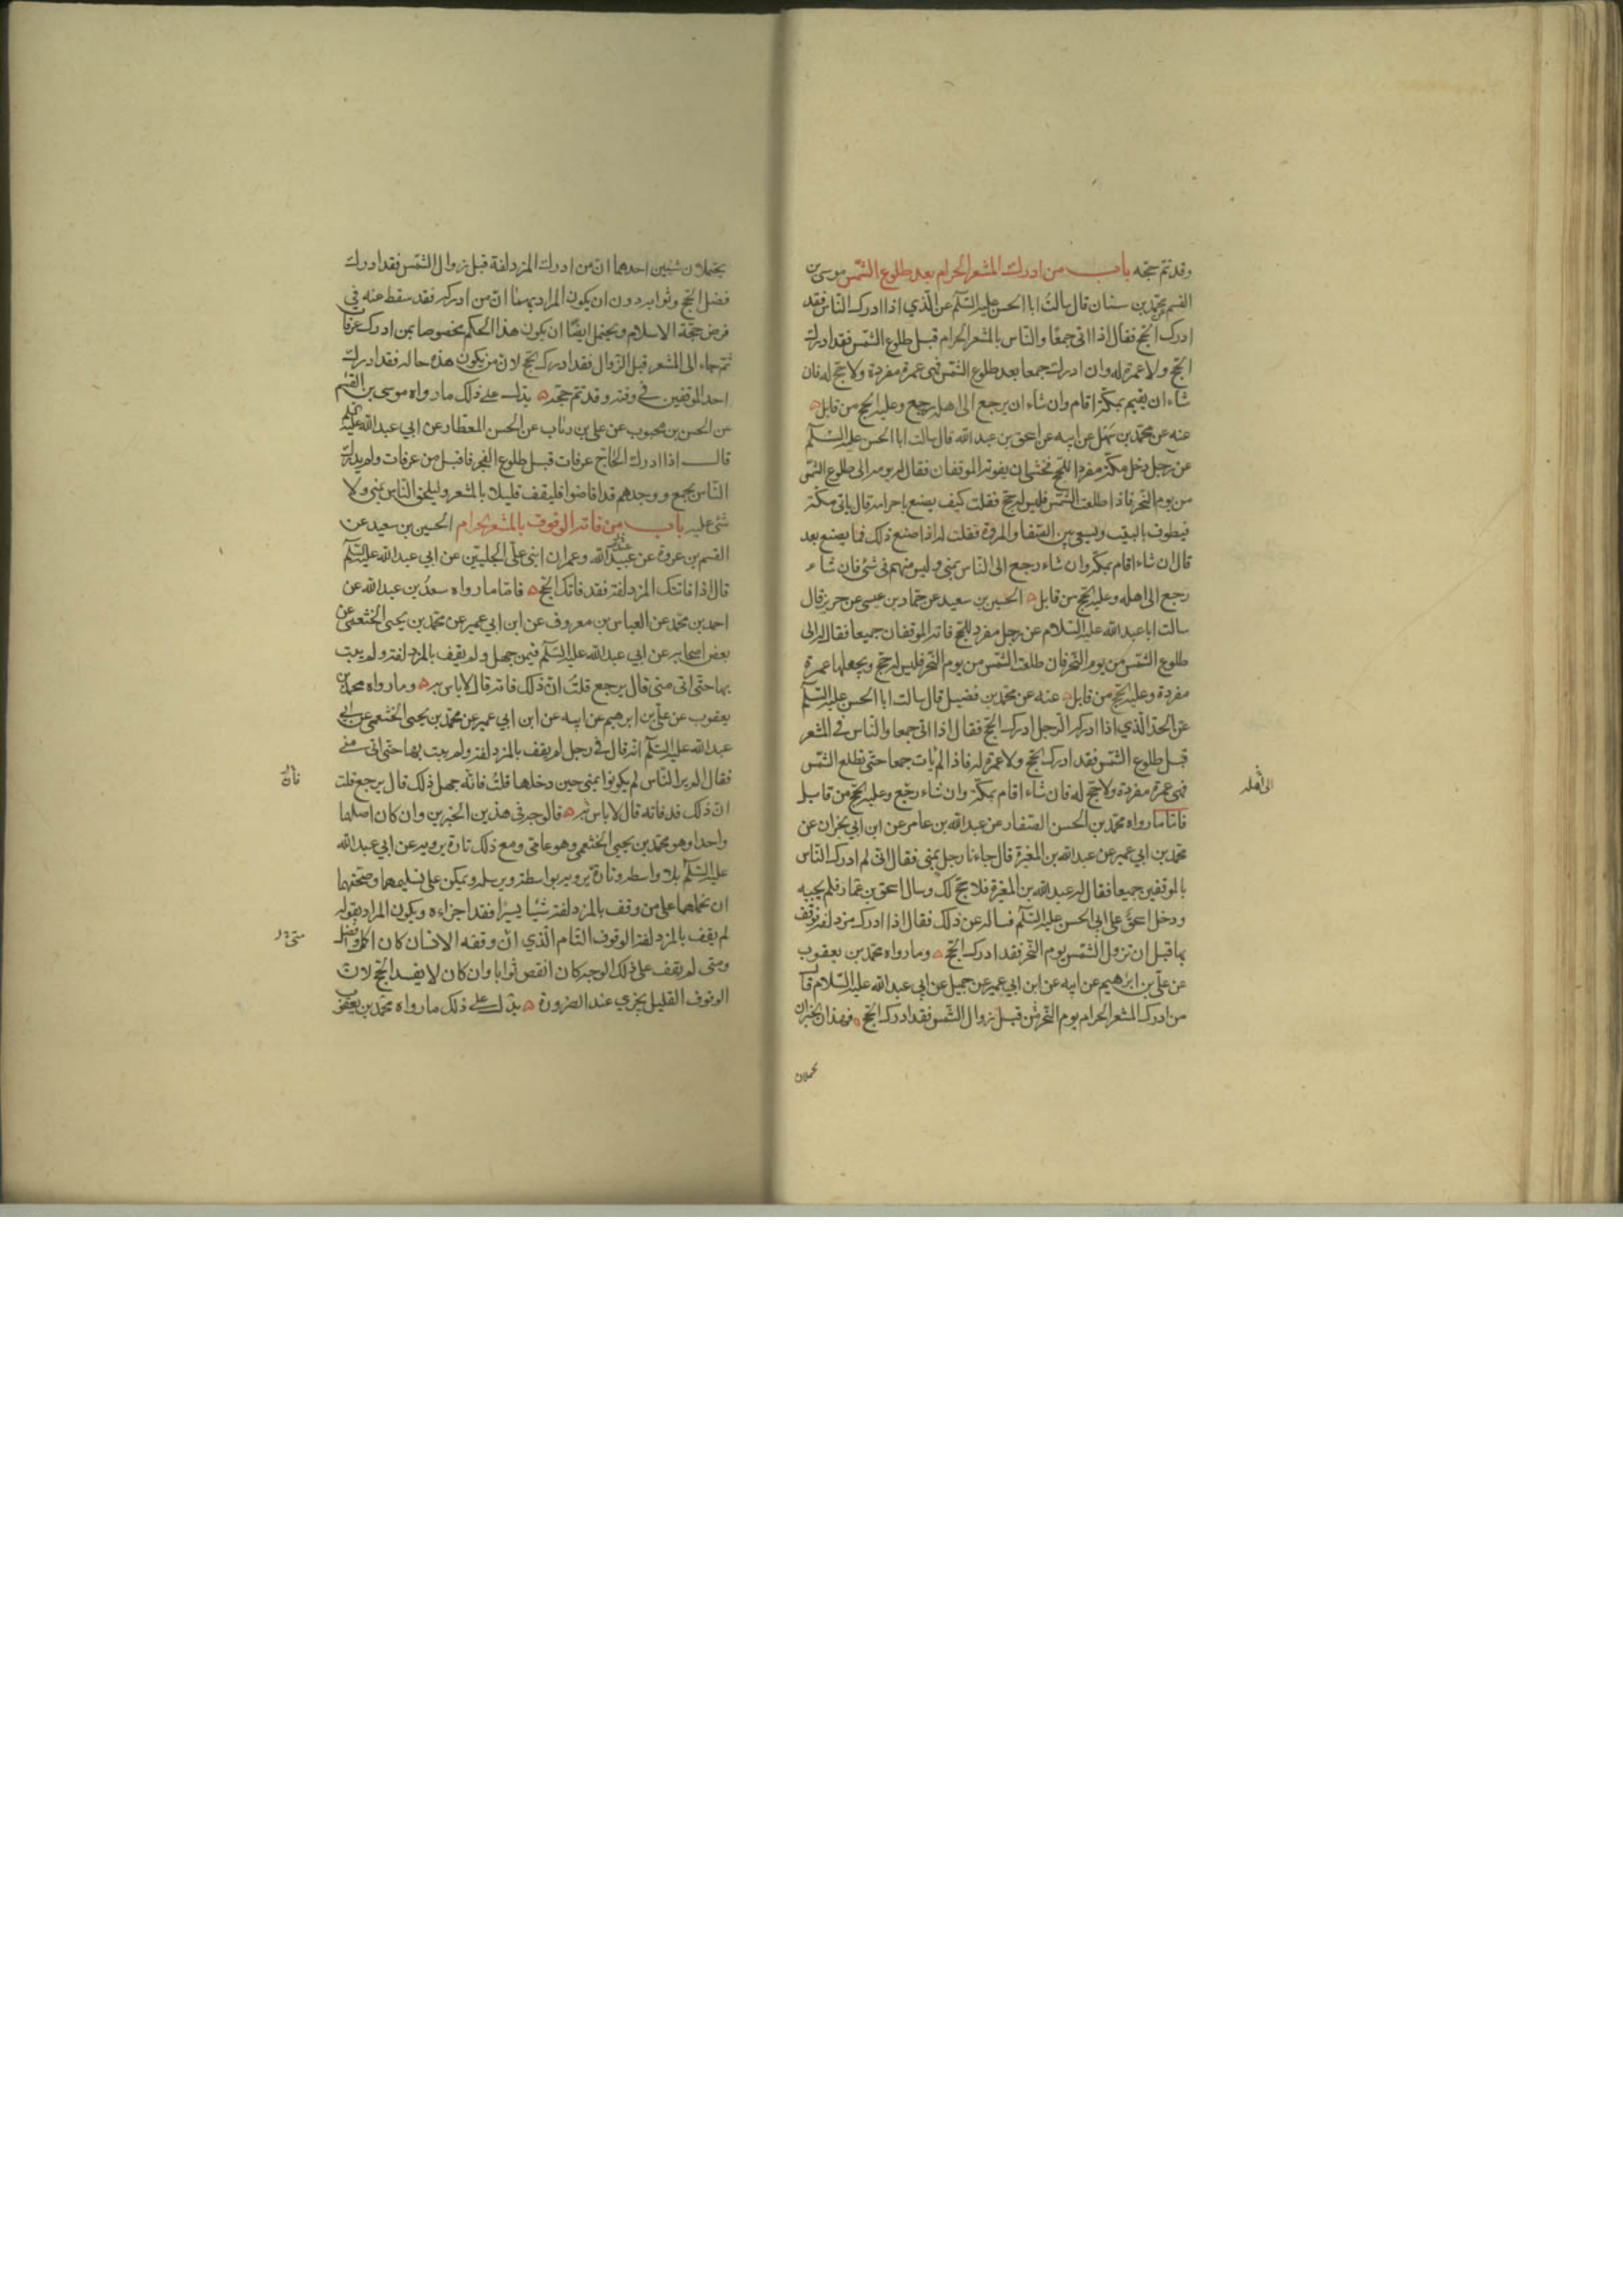 وقد تم حجه باب من ادرك المشعر الحرام بعد طلوع الشمس موسى بن
القسم عن محمد بن سنان قال سالت ابا الحسن عليه السلم عن الذي اذا ادرك الناس فقد
ادرك الحج فقال اذا اتى جمعا والناس بالمشعر الحرام قبل طلوع الشمس فقد ادرك
الحج ولا عمرة له وان ادرك جمعا بعد طلوع الشمس فهى عمرة مفردة ولا حج له فان
شاء ان يقيم بمكة اقام وان شاء ان يرجع الى اهله رجع وعليه الحج من قابل
عنه عن محمد بن سهل عن ابيه عن اسحق بن عبد الله قال سالت ابا الحسن عليه السلم
عن رجل دخل مكة مفردا للحج فخشى ان يفوته الموقفان فقال له يومه الى طلوع الشمس
من يوم النحر فاذا طلعت الشمس فليس له حج فقلت كيف يصنع باحرامه قال ياتى مكة
فيطوف بالبيت ويسعى بين الصفا والمروة فقلت له اذا صنع ذلك فما يصنع بعد
قال ان شاء اقام بمكة وان شاء رجع الى الناس بمنى وليس منهم فى شئ فان شاء
رجع الى اهله وعليه الحج من قابل الحسين بن سعيد عن حماد بن عيسى عن حريز قال
سالت ابا عبد الله عليه السلام عن رجل مفرد للحج فاته الموقفان جميعا فقال له الى
طلوع الشمس من يوم النحر فان طلعت الشمس من يوم النحر فليس له حج ويجعلها عمرة
مفردة وعليه الحج من قابل عنه عن محمد بن فضيل قال سالت ابا الحسن عليه السلم
عن الحد الذي اذا ادركه الرجل ادرك الحج فقال اذا اتى جمعا والناس في المشعر
قبل طلوع الشمس فقد ادرك الحج ولا عمرة له فاذا لم يات جمعا حتى تطلع الشمس
فهى عمرة مفردة ولا حج له فان شاء اقام بمكة وان شاء رجع وعليه الحج من قابل
الى اهله
فاما ما رواه محمد بن الحسن الصفار عن عبد الله بن عامر عن ابن ابي نجران عن
محمد بن ابي عمير عن عبد الله بن المغيرة قال جاءنا رجل بمنى فقال انى لم ادرك الناس
بالموقفين جميعا فقال له عبد الله بن المغيرة فلا حج لك وسال اسحق بن عمار فلم يجبه
ودخل اسحق على ابى الحسن عليه السلم فساله عن ذلك فقال اذا ادرك مزدلفة فوقف
بها قبل ان تزول الشمس يوم النحر فقد ادرك الحج وما رواه محمد بن يعقوب
عن علي بن ابرهيم عن ابيه عن ابن ابي عمير عن جميل عن ابي عبد الله عليه السلام قال
من ادرك المشعر الحرام يوم النحر من قبل زوال الشمس فقد ادرك الحج فهذان الخبران
يحتملان
يحتملان شيئين احدهما ان من ادرك المزدلفة قبل زوال الشمس فقد ادرك
فضل الحج وثوابه دون ان يكون المراد بهما ان من ادركه فقد سقط عنه في
فرض حجة الاسلام ويحتمل ايضا ان يكون هذا الحكم مخصوصا بمن ادرك عرفات
ثم جاء الى المشعر قبل الزوال فقد ادرك الحج لان من يكون هذه حاله فقد ادرك
احد الموقفين في وقته وقد تم حجه يدل على ذلك ما رواه موسى بن القسم
عن الحسن بن محبوب عن علي بن رئاب عن الحسن العطار عن ابي عبد الله عليه السلم
قال اذا ادرك الحاج عرفات قبل طلوع الفجر فاقبل من عرفات ولم يدرك
الناس بجمع ووجدهم قد افاضوا فليقف قليلا بالمشعر وليلحق الناس بمنى ولا
شئ عليه باب من فاته الوقوف بالمشعر الحرام الحسين بن سعيد عن
القسم بن عروة عن عبيد الله وعمران ابنى على الحلبيين عن ابي عبد الله عليه السلم
قال اذا فاتتك المزدلفة فقد فاتك الحج فاما ما رواه سعد بن عبد الله عن
احمد بن محمد عن العباس بن معروف عن ابن ابي عمير عن محمد بن يحيى الخثعمى عن
بعض اصحابه عن ابي عبد الله عليه السلم فيمن جهل ولم يقف بالمزدلفة ولم يبت
بها حتى اتى منى قال يرجع قلت ان ذلك فاته قال لا باس به وما رواه محمد بن
يعقوب عن علي بن ابرهيم عن ابيه عن ابن ابي عمير عن محمد بن يحيى الخثعمى عن ابي
عبد الله عليه السلم انه قال في رجل لم يقف بالمزدلفة ولم يبت بها حتى اتى منى
فقال الم ير الناس لم يكونوا بمنى حين دخلها قلت فانه جهل ذلك قال يرجع قلت
ان ذلك قد فاته قال لا باس به فالوجه في هذين الخبرين وان كان اصلهما
واحدا وهو محمد بن يحيى الخثعمى وهو عامى ومع ذلك تارة يرويه عن ابي عبد الله
عليه السلم بلا واسطه وتارة يرويه بواسطة ويرسله ويمكن على تسليمهما وصحتهما
ان نحملهما على من وقف بالمزدلفة شيئا يسيرا فقد اجزاءه ويكون المراد بقوله
لم يقف بالمزدلفة الوقوف التام الذي ان وقفه الانسان كان اكمل وافضل
ومتى لم يقف على ذلك الوجه كان انقص ثوابا وان كان لا يفسد الحج لان
الوقوف القليل يجزي عند الضرورة يدل على ذلك ما رواه محمد بن يعقوب